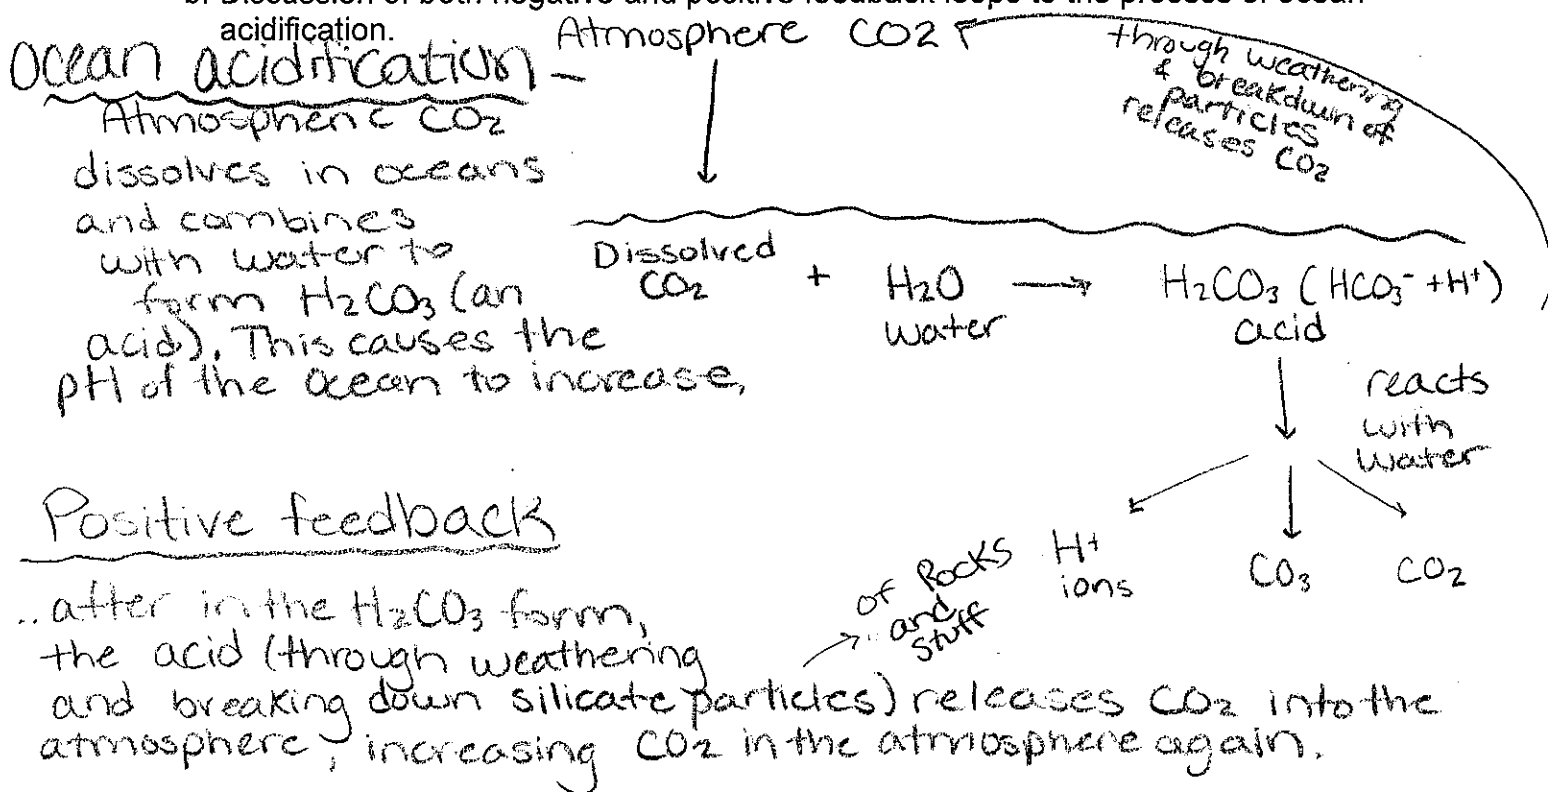 b. Discussion of both negative and positive feedback loops to the process of ocean
acidification.
Ocean acidification –
Atmospheric CO2
dissolves in oceans
and combines
with water to
form H2CO3 (an
acid). This causes the
pH of the ocean to increase,
Atmosphere CO2
through weathering
& breakdown of
particles
releases CO2
Dissolved
CO2
+
H2O
water
→
H2CO3 (HCO3⁻ + H⁺)
acid
reacts
with
water
H⁺
ions
CO3
CO2
Positive feedback
.. after in the H2CO3 form,
the acid (through weathering
and breaking down silicate particles) releases CO2 into the
atmosphere, increasing CO2 in the atmosphere again.
→ of Rocks
and
stuff